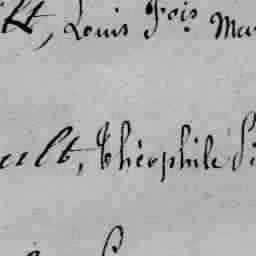 lt, Louis Fois Ma
ult, Théophile